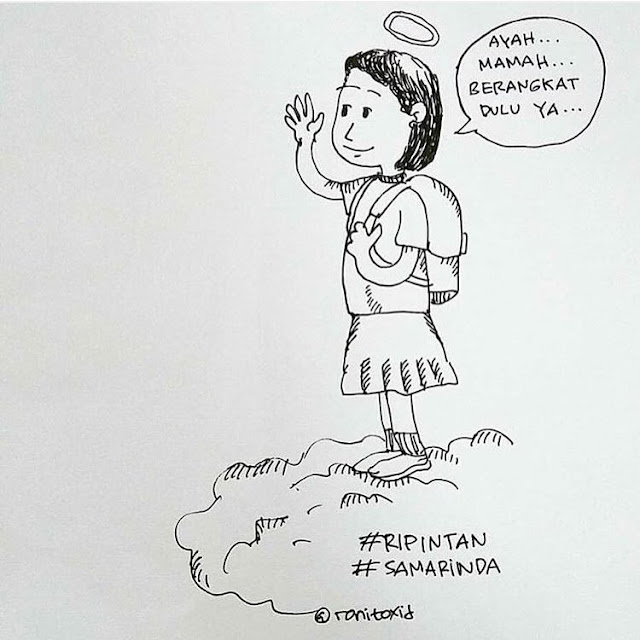 AYAH...
MAMAH...
BERANGKAT
DULU YA...
#RIPINTAN
#SAMARINDA
@ronitoxid